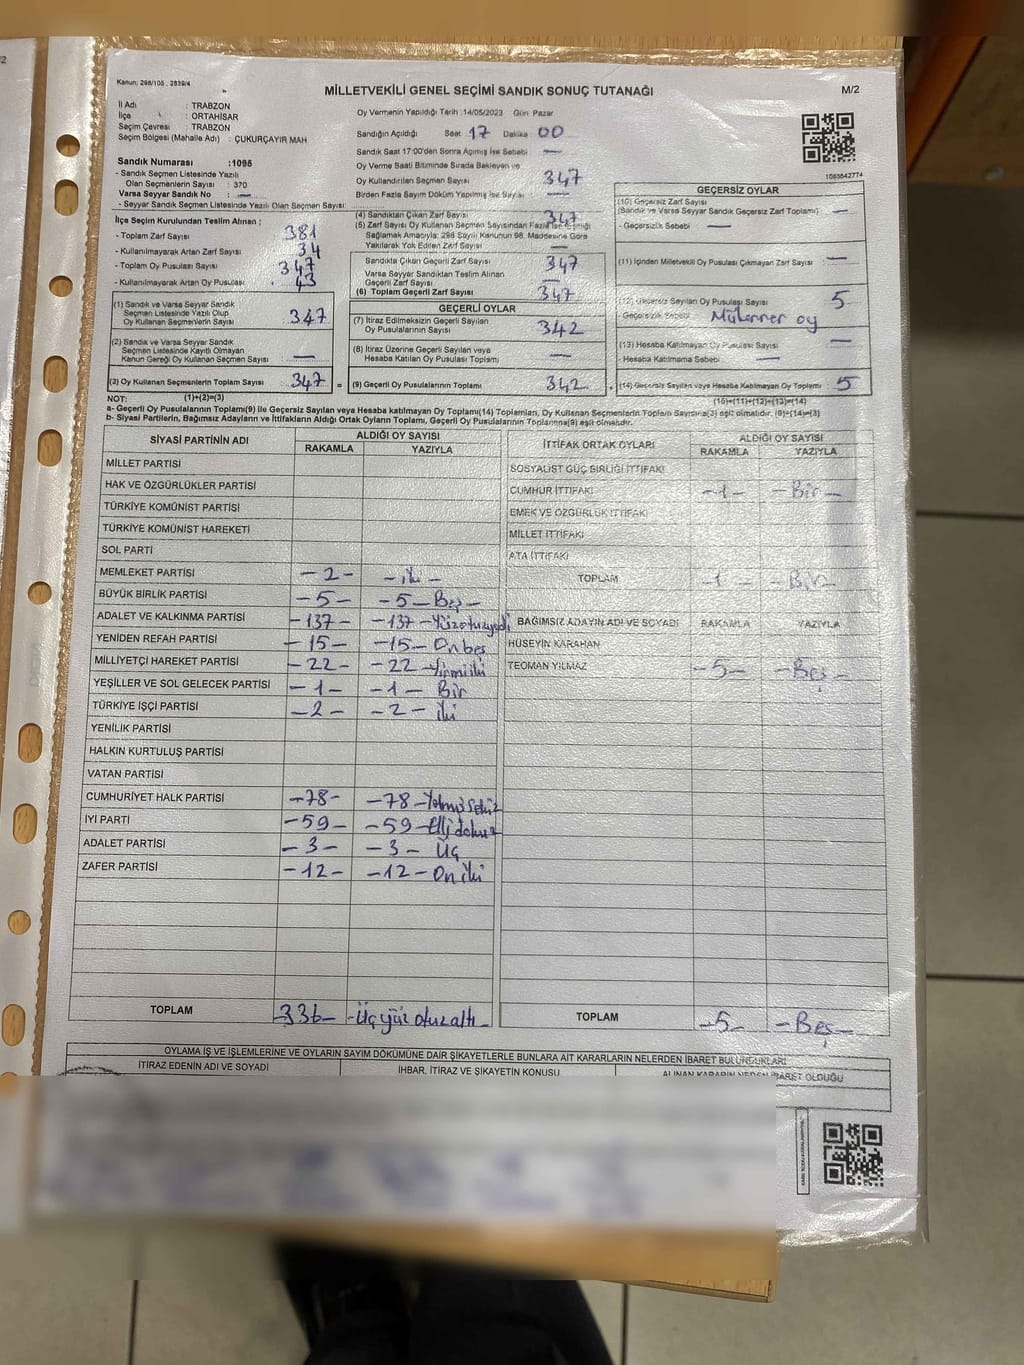 Kanun: 298/105 , 2839/4
MİLLETVEKİLİ GENEL SEÇİMİ SANDIK SONUÇ TUTANAĞI
M/2
İl Adı : TRABZON
İlçe : ORTAHİSAR
Seçim Çevresi : TRABZON
Seçim Bölgesi (Mahalle Adı) : ÇUKURÇAYIR MAH
Sandık Numarası :1095
- Sandık Seçmen Listesinde Yazılı
Olan Seçmenlerin Sayısı : 370
Varsa Seyyar Sandık No : —
- Seyyar Sandık Seçmen Listesinde Yazılı Olan Seçmen Sayısı:
İlçe Seçim Kurulundan Teslim Alınan ;
- Toplam Zarf Sayısı 381
- Kullanılmayarak Artan Zarf Sayısı 34
- Toplam Oy Pusulası Sayısı 347
- Kullanılmayarak Artan Oy Pusulası 43
(1) Sandık ve Varsa Seyyar Sandık
Seçmen Listesinde Yazılı Olup
Oy Kullanan Seçmenlerin Sayısı 347
(2) Sandık ve Varsa Seyyar Sandık
Seçmen Listesinde Kayıtlı Olmayan
Kanun Gereği Oy Kullanan Seçmen Sayısı —
(3) Oy Kullanan Seçmenlerin Toplam Sayısı 347 =
(1)+(2)=(3)
Oy Vermenin Yapıldığı Tarih :14/05/2023 Gün Pazar
Sandığın Açıldığı Saat 17 Dakika 00
Sandık Saat 17:00'den Sonra Açılmış İse Sebebi —
Oy Verme Saati Bitiminde Sırada Bekleyen ve
Oy Kullandırılan Seçmen Sayısı 347
Birden Fazla Sayım Döküm Yapılmış İse Sayısı —
(4) Sandıktan Çıkan Zarf Sayısı 347
(5) Zarf Sayısı Oy Kullanan Seçmen Sayısından Fazla İse Eşitliği
Sağlamak Amacıyla; 298 Sayılı Kanunun 98. Maddesine Göre
Yakılarak Yok Edilen Zarf Sayısı —
Sandıkta Çıkan Geçerli Zarf Sayısı 347
Varsa Seyyar Sandıktan Teslim Alınan
Geçerli Zarf Sayısı —
(6) Toplam Geçerli Zarf Sayısı 347
GEÇERLİ OYLAR
(7) İtiraz Edilmeksizin Geçerli Sayılan
Oy Pusulalarının Sayısı 342
(8) İtiraz Üzerine Geçerli Sayılan veya
Hesaba Katılan Oy Pusulası Toplamı —
(9) Geçerli Oy Pusulalarının Toplamı 342
1085842774
GEÇERSİZ OYLAR
(10) Geçersiz Zarf Sayısı
(Sandık ve Varsa Seyyar Sandık Geçersiz Zarf Toplamı) —
- Geçersizlik Sebebi —
(11) İçinden Milletvekili Oy Pusulası Çıkmayan Zarf Sayısı: —
(12) Geçersiz Sayılan Oy Pusulası Sayısı 5
- Geçersizlik Sebebi Mükerrer oy
(13) Hesaba Katılmayan Oy Pusulası Sayısı —
- Hesaba Katılmama Sebebi —
(14) Geçersiz Sayılan veya Hesaba Katılmayan Oy Toplamı 5
(10)+(11)+(12)+(13)=(14)
NOT:
a- Geçerli Oy Pusulalarının Toplamı(9) ile Geçersiz Sayılan veya Hesaba katılmayan Oy Toplamı(14) Toplamları, Oy Kullanan Seçmenlerin Toplam Sayısına(3) eşit olmalıdır. (9)+(14)=(3)
b- Siyasi Partilerin, Bağımsız Adayların ve İttifakların Aldığı Ortak Oyların Toplamı, Geçerli Oy Pusulalarının Toplamına(9) eşit olmalıdır.
SİYASİ PARTİNİN ADI ALDIĞI OY SAYISI
RAKAMLA YAZIYLA
MİLLET PARTİSİ
HAK VE ÖZGÜRLÜKLER PARTİSİ
TÜRKİYE KOMÜNİST PARTİSİ
TÜRKİYE KOMÜNİST HAREKETİ
SOL PARTİ
MEMLEKET PARTİSİ -2- -iki-
BÜYÜK BİRLİK PARTİSİ -5- -5-Beş-
ADALET VE KALKINMA PARTİSİ -137- -137-Yüzotuzyedi
YENİDEN REFAH PARTİSİ -15- -15-Onbeş
MİLLİYETÇİ HAREKET PARTİSİ -22- -22-Yirmiiki
YEŞİLLER VE SOL GELECEK PARTİSİ -1- -1- Bir
TÜRKİYE İŞÇİ PARTİSİ -2- -2- iki
YENİLİK PARTİSİ
HALKIN KURTULUŞ PARTİSİ
VATAN PARTİSİ
CUMHURİYET HALK PARTİSİ -78- -78-Yetmişsekiz
İYİ PARTİ -59- -59-Ellidokuz
ADALET PARTİSİ -3- -3- Üç
ZAFER PARTİSİ -12- -12-Oniki
TOPLAM -336- -Üçyüz otuzaltı-
İTTİFAK ORTAK OYLARI ALDIĞI OY SAYISI
RAKAMLA YAZIYLA
SOSYALİST GÜÇ BİRLİĞİ İTTİFAKI
CUMHUR İTTİFAKI -1- -Bir-
EMEK VE ÖZGÜRLÜK İTTİFAKI
MİLLET İTTİFAKI
ATA İTTİFAKI
TOPLAM -1- -Bir-
BAĞIMSIZ ADAYIN ADI VE SOYADI RAKAMLA YAZIYLA
HÜSEYİN KARAHAN
TEOMAN YILMAZ -5- -Beş-
TOPLAM -5- -Beş-
OYLAMA İŞ VE İŞLEMLERİNE VE OYLARIN SAYIM DÖKÜMÜNE DAİR ŞİKAYETLERLE BUNLARA AİT KARARLARIN NELERDEN İBARET BULUNDUKLARI
İTİRAZ EDENİN ADI VE SOYADI İHBAR, İTİRAZ VE ŞİKAYETİN KONUSU ALINAN KARARIN NEDEN İBARET OLDUĞU